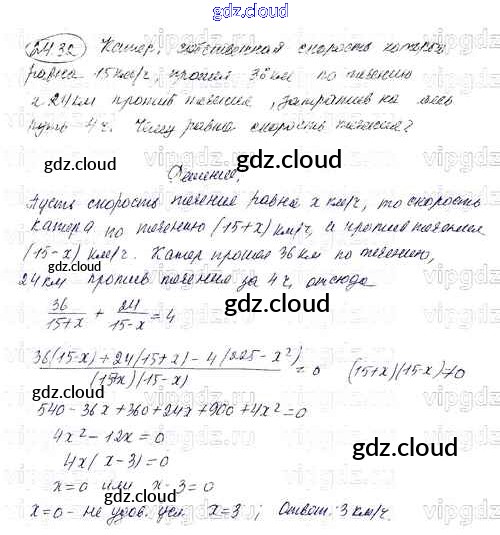 gdz.cloud
24.32 Катер, собственная скорость которого
равна 15 км/ч, прошел 36 км по течению
и 24 км против течения, затратив на весь
путь 4 ч. Чему равна скорость течения?
gdz.cloud gdz.cloud
Решение.
Пусть скорость течения равна x км/ч, то скорость
катера по течению (15+x) км/ч, а против течения
(15-x) км/ч. Катер прошел 36 км по течению,
24 км против течения за 4 ч, отсюда
36/(15+x) + 24/(15-x) = 4
gdz.cloud
(36(15-x)+24(15+x)-4(225-x²))/((15+x)(15-x)) = 0 (15+x)(15-x)≠0
gdz.cloud
540-36x+360+24x+900+4x²=0
4x²-12x=0
gdz.cloud
4x(x-3)=0
x=0 или x-3=0
gdz.cloud
x=0 - не удов. усл. x=3; Ответ: 3 км/ч.
gdz.cloud